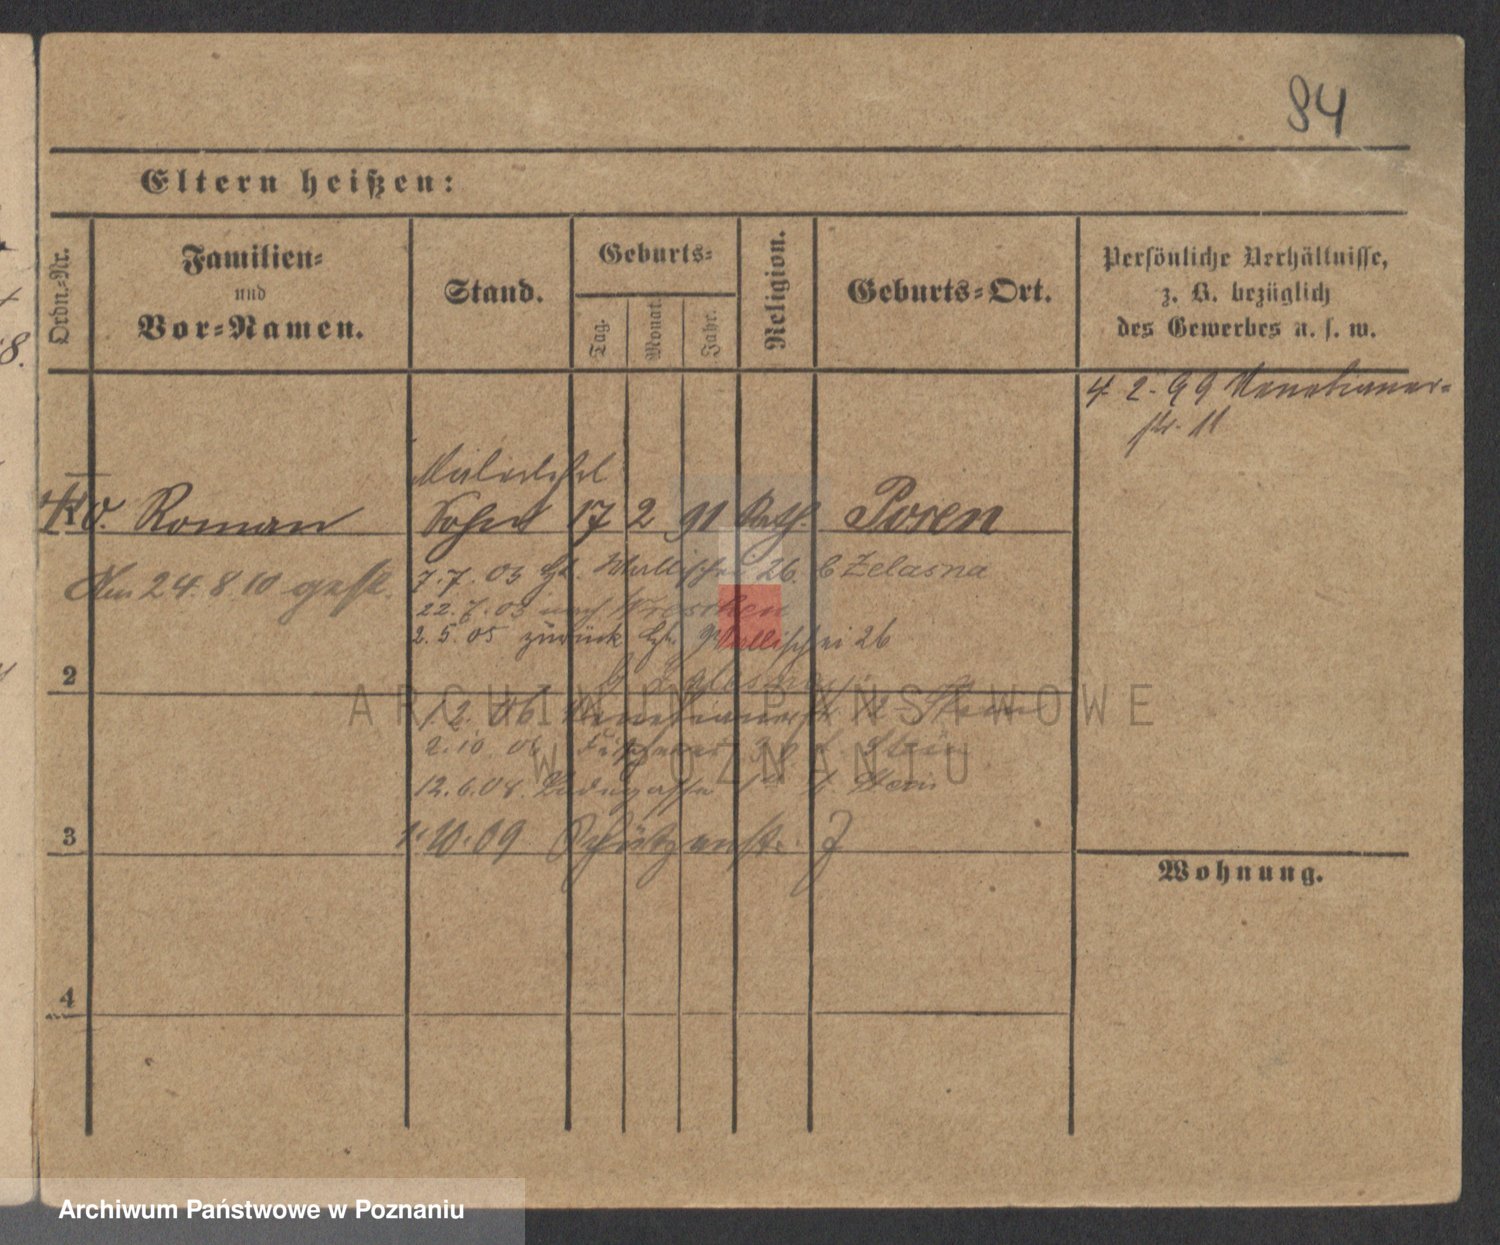 94
Eltern heißen:
Ordn.-Nr.
Familien-
und
Vor-Namen.
Stand.
Geburts-
Tag.
Monat.
Jahr.
Religion.
Geburts-Ort.
Persönliche Verhältnisse,
z. B. bezüglich
des Gewerbes u. s. w.
4. 2. 99 Venetianer-
str. 11
Roman Sohn 17 2 91 Kath. Posen
7. 7. 03 Wallischei 26 b Zelasna
Am 24. 8. 10 gestr.
22. 7. 03 nach Wreschen
2. 5. 05 zurück Wallischei 26
2
1. 2. 06 Venetianerstr.
2. 10. 06
12. 6. 08
3
1. 10. 09 Schützenstr. 7
Wohnung.
4
ARCHIWUM PAŃSTWOWE
W POZNANIU
Archiwum Państwowe w Poznaniu
8.